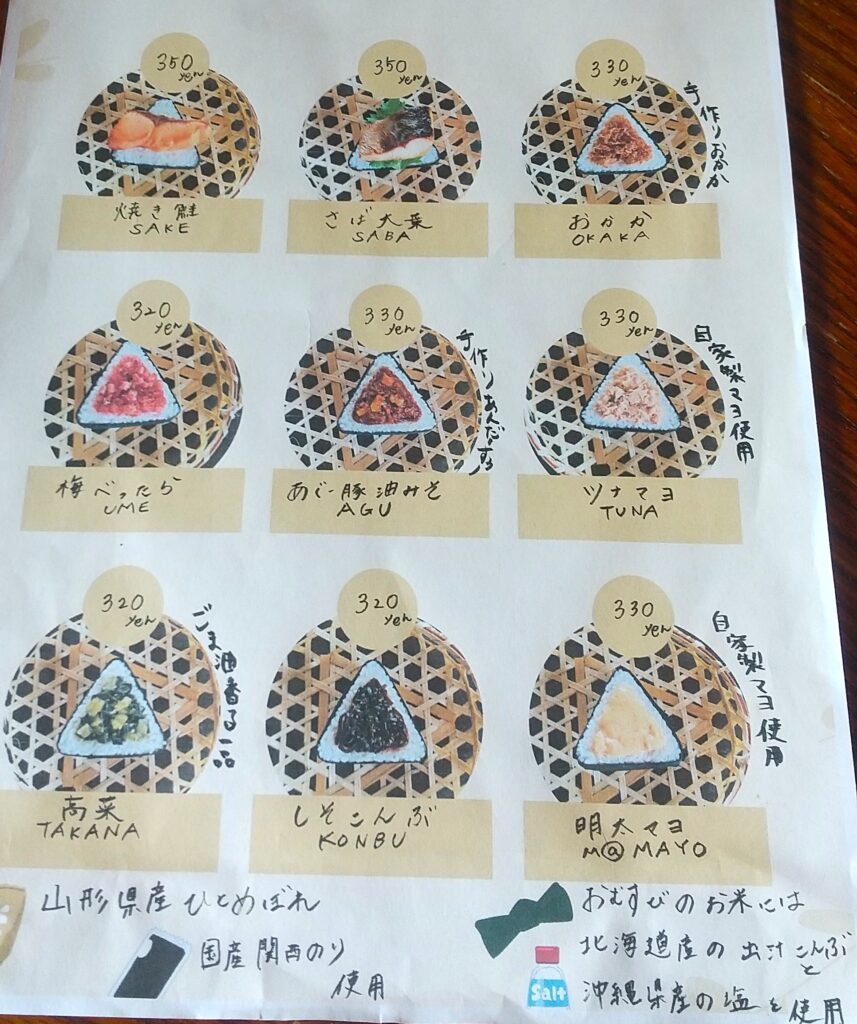 350
yen
焼き鮭
SAKE
350
yen
さば大葉
SABA
330
yen
手作りおかか
おかか
OKAKA
320
yen
梅べったら
UME
330
yen
手作りあんだすぅ
あぐー豚油みそ
AGU
330
yen
自家製マヨ使用
ツナマヨ
TUNA
320
yen
ごま油香る一品
高菜
TAKANA
320
yen
しそこんぶ
KONBU
330
yen
自家製マヨ使用
明太マヨ
M@MAYO
山形県産ひとめぼれ
国産関西のり
使用
おむすびのお米には
北海道産の出汁こんぶ
と
Salt
沖縄県産の塩を使用